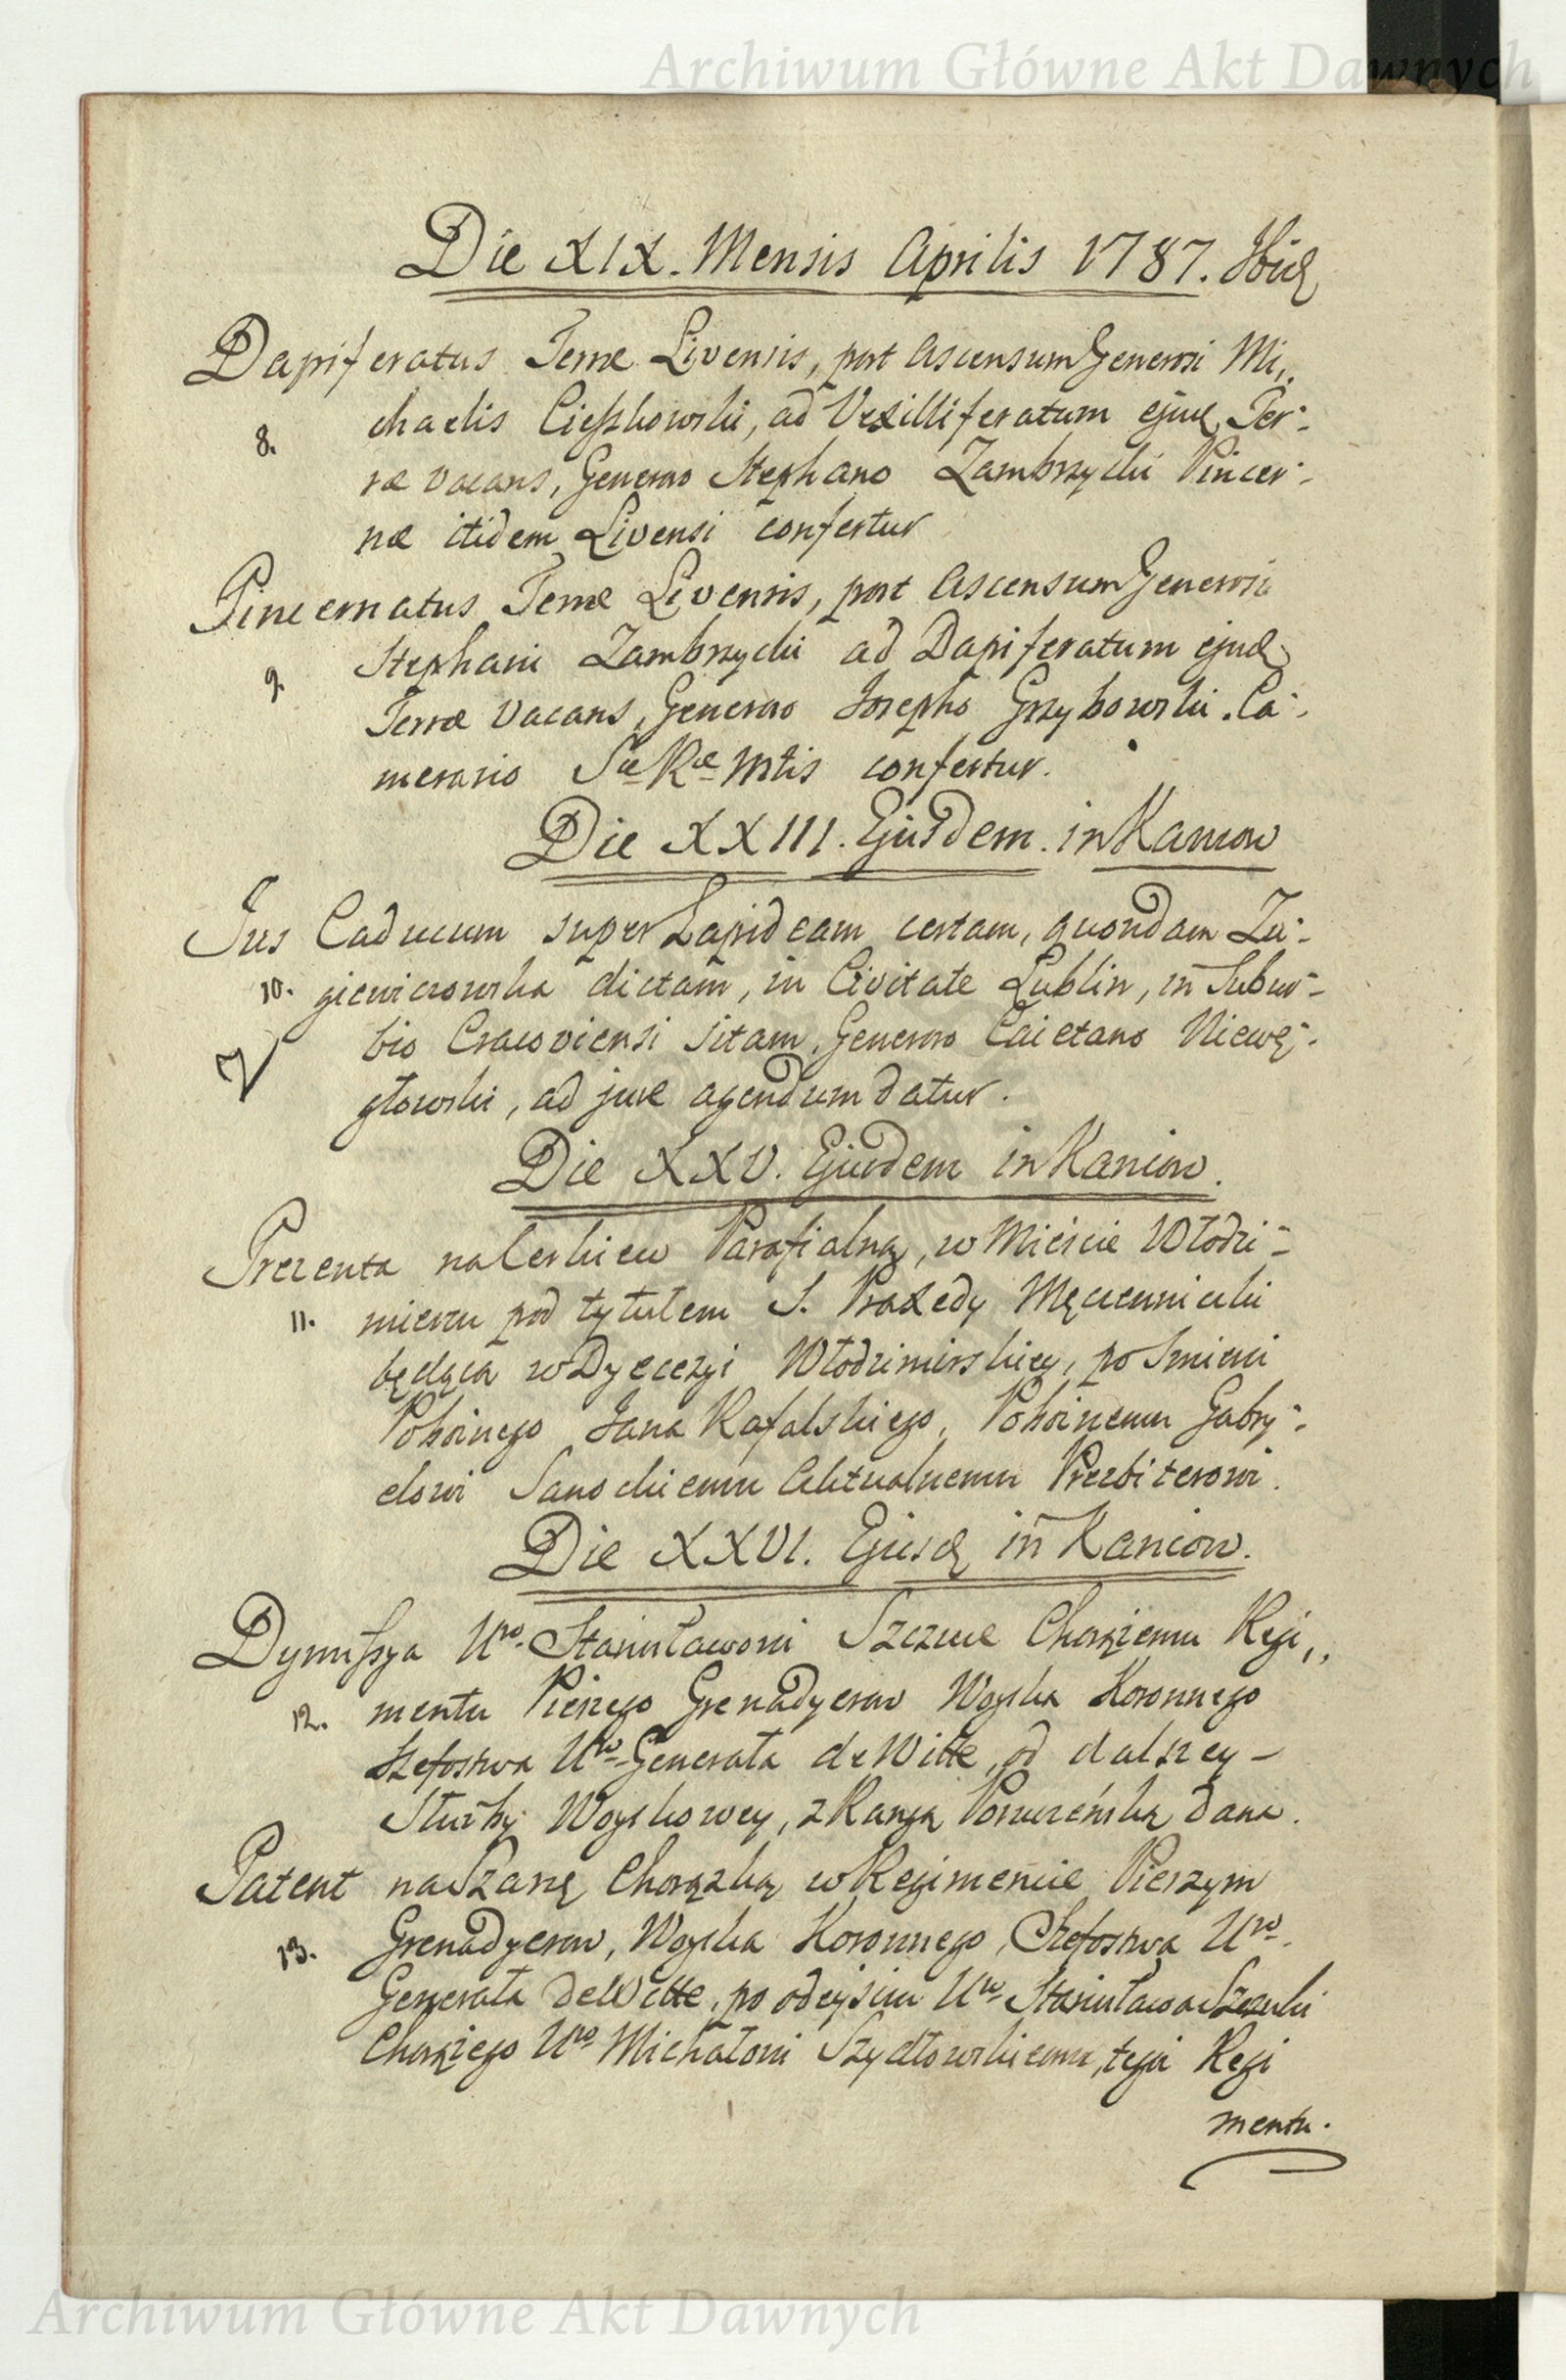 Archiwum Główne Akt Dawnych
Die XIX. Mensis Aprilis 1787. Ibid
Dapiferatus Terræ Livensis, post Ascensum Generosi Mi,,
8. chaelis Cieszkowski, ad Vexilliferatum ejusd Ter-
ræ vacans, Generoso Stephano Zambrzycki Pincer-
næ itidem Livensi confertur
Pincernatus Terræ Livensis, post Ascensum Generosi
9. Stephani Zambrzycki ad Dapiferatum ejusd
Terræ vacans, Generoso Josepho Grzybowski Ca-
merario Sæ Ræ Mtis confertur.
Die XXIII. Ejusdem. in Kaniow
Jus Caducum super Lapideam certam, quondam Zu-
10. giewiczowska dictam, in Civitate Lublin, in Subur-
bio Cracoviensi sitam, Generoso Caietano Niewę-
głowski, ad jure agendum datur.
Die XXV. Ejusdem in Kaniow.
Prezenta na Cerkiew Parafialną, w Mieście Włodzi-
11. mierzu pod tytułem S. Praxedy Męczenniczki
będącą w Dyecezyi Włodzimirskiey, po Smierci
Pobożnego Jana Rafalskiego, Pobożnemu Gabry-
elowi Sanockiemu Aktualnemu Prezbiterowi.
Die XXVI. Ejusd in Kaniow.
Dymissya Uro. Stanisławowi Szczuce Chorążemu Regi,,
12. mentu Pieszego Grenadyerow Woyska Koronnego
Szefostwa Uro Generała de Witte, od dalszey-
Służby Woyskowey, z Rangą Poruczeńską dana.
Patent na Szarżę Chorązką w Regimencie Pieszym
13. Grenadyerow, Woyska Koronnego, Szefostwa Uro.
Generała de Witte, po odejściu Uro Stanisława Szczuki
Chorążego Uro Michałowi Szydłowskiemu, tegoż Regi
mentu.
Archiwum Główne Akt Dawnych